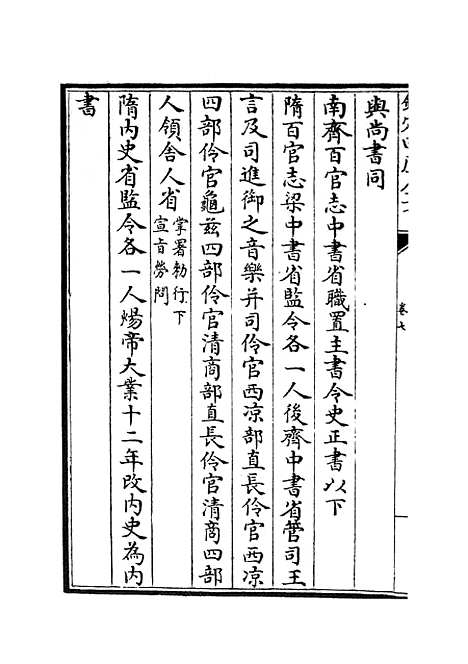 卷七
與尚書同
南齊百官志中書省職置主書令史正書以下
隋百官志梁中書省監令各一人後齊中書省管司王
言及司進御之音樂并司伶官西凉部直長伶官西凉
四部伶官龜兹四部伶官清商部直長伶官清商四部
人領舍人省掌署勅行下
宣旨勞問
隋内史省監令各一人煬帝大業十二年改内史為内
書